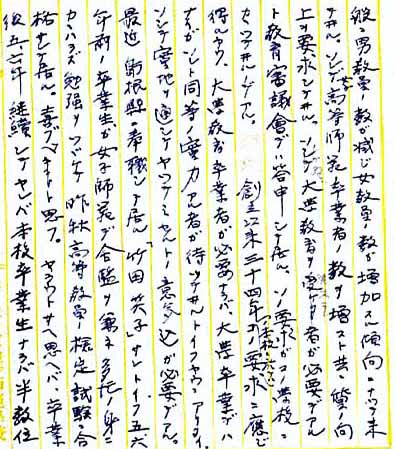 般ニ男教員ノ数ガ減ジ女教員ノ数ガ増加スル傾向ニナツテ来
テヰル。ソレデ高等師範卒業者ノ数ヲ増スト共ニ質ノ向
上ヲ要求シテヰル。ソレデ大学教育ヲ受ケタ者ガ必要デアル
ト教育審議会デハ答申シテ居ル。ソノ要求ガコノ学校ニ
カカツテヰルノデアル。創立以来三十四年ノコノ要求ニ応ジ
得ルヤウ、大学教育卒業者ガ必要ナラバ、大学卒業デハ
ナイガソレト同等ノ実力アル者ガ待ツテヰルトイフヤウニアリタイ。
ソシテ実地ヲ通シテヤツテミセルトノ意気込ガ必要デアル。
最近島根県ニ奉職シテ居ル「竹田英子」サントイフ五六
年前ノ卒業生ガ女子師範デ舎監ヲ兼ネ多忙ノ身ニ
カカハラズ勉強ヲツヅケ昨秋高等教員ノ検定試験ニ合
格シテ居ル。喜ブベキコトト思フ。ヤラウトサヘ思ヘバ、卒業
後五、六年継続シテヤレバ本校卒業生ナラバ半数位